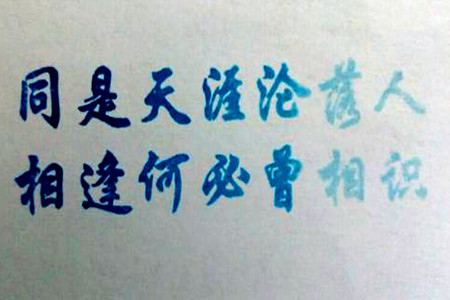 同是天涯沦落人
相逢何必曾相识